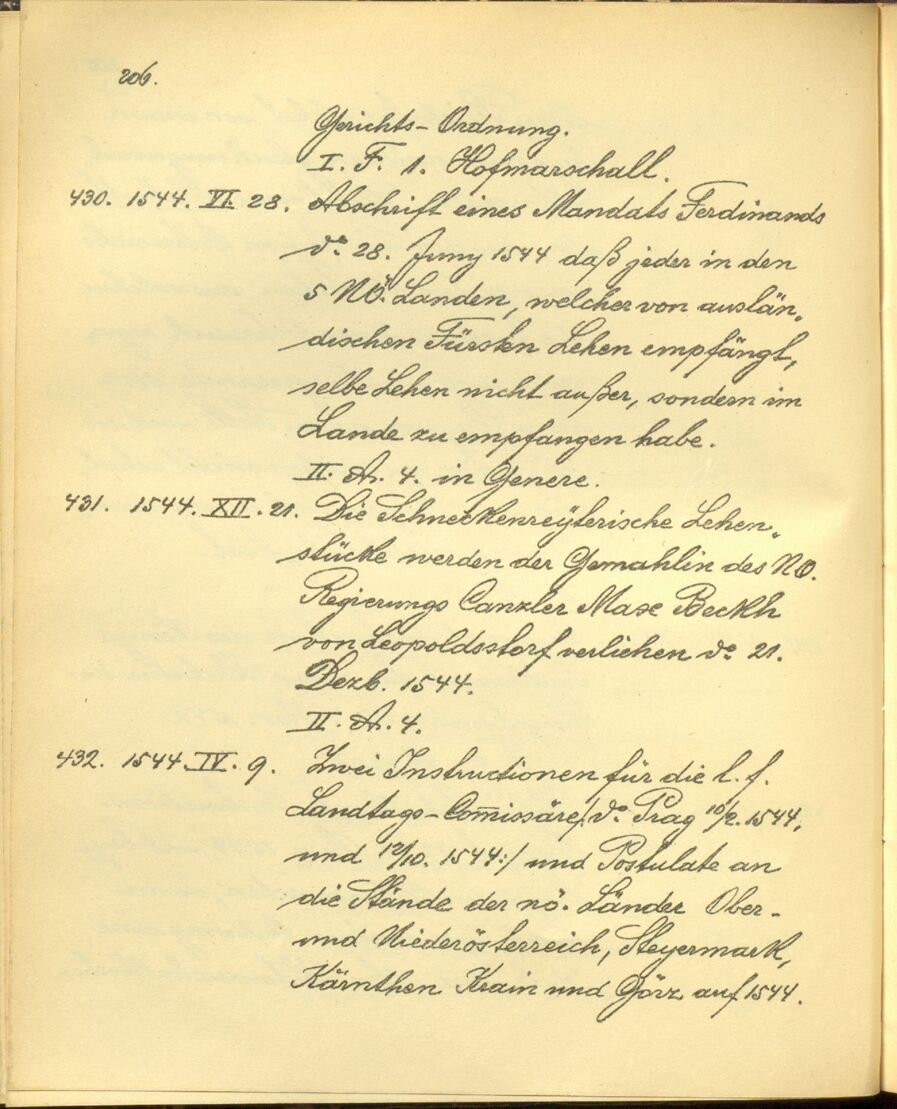 206.
Gerichts-Ordnung.
I. F. 1. Hofmarschall.
430. 1544. VI. 28. Abschrift eines Mandats Ferdinands
do 28. Juny 1544 daß jeder in den
5 NÖ. Landen, welcher von auslän„
dischen Fürsten Lehen empfängt,
selbe Lehen nicht außer, sondern im
Lande zu empfangen habe.
II. A. 4. in Genere.
431. 1544. XII. 21. Die Schneckenreyterische Lehen„
stücke werden der Gemahlin des NÖ.
Regierungs Canzler Max Beckh
von Leopoldsstorf verlichen do 21.
Dezb. 1544.
II. A. 4.
432. 1544. IV. 9. Zwei Instructionen für die l. f.
Landtags-Com̅issäre /: do Prag 10/2. 1544,
und 12/10. 1544:/ und Postulate an
die Stände der nö. Länder Ober-
und Niederösterreich, Steyermark,
Kärnthen Krain und Görz auf 1544.